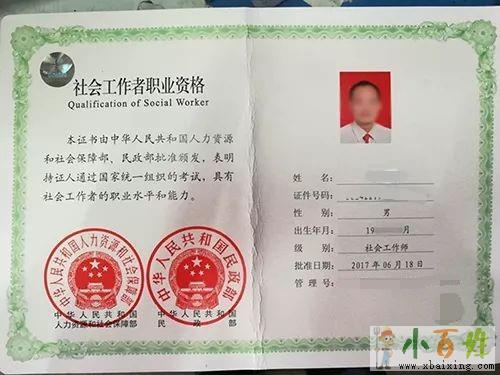 社会工作者职业资格
Qualification of Social Worker
本证书由中华人民共和国人力资源
和社会保障部、民政部批准颁发，表明
持证人通过国家统一组织的考试，具有
社会工作者的职业水平和能力。
中华人民共和国人力资源和社会保障部
中华人民共和国民政部
中华人民共和国
人力资源和社会保障部
中华人民共和国
民政部
姓名：
证件号码：
性别：男
出生年月：19 月
级别：社会工作师
批准日期：2017年06月18日
管理号：
小百姓
www.xbaixing.com